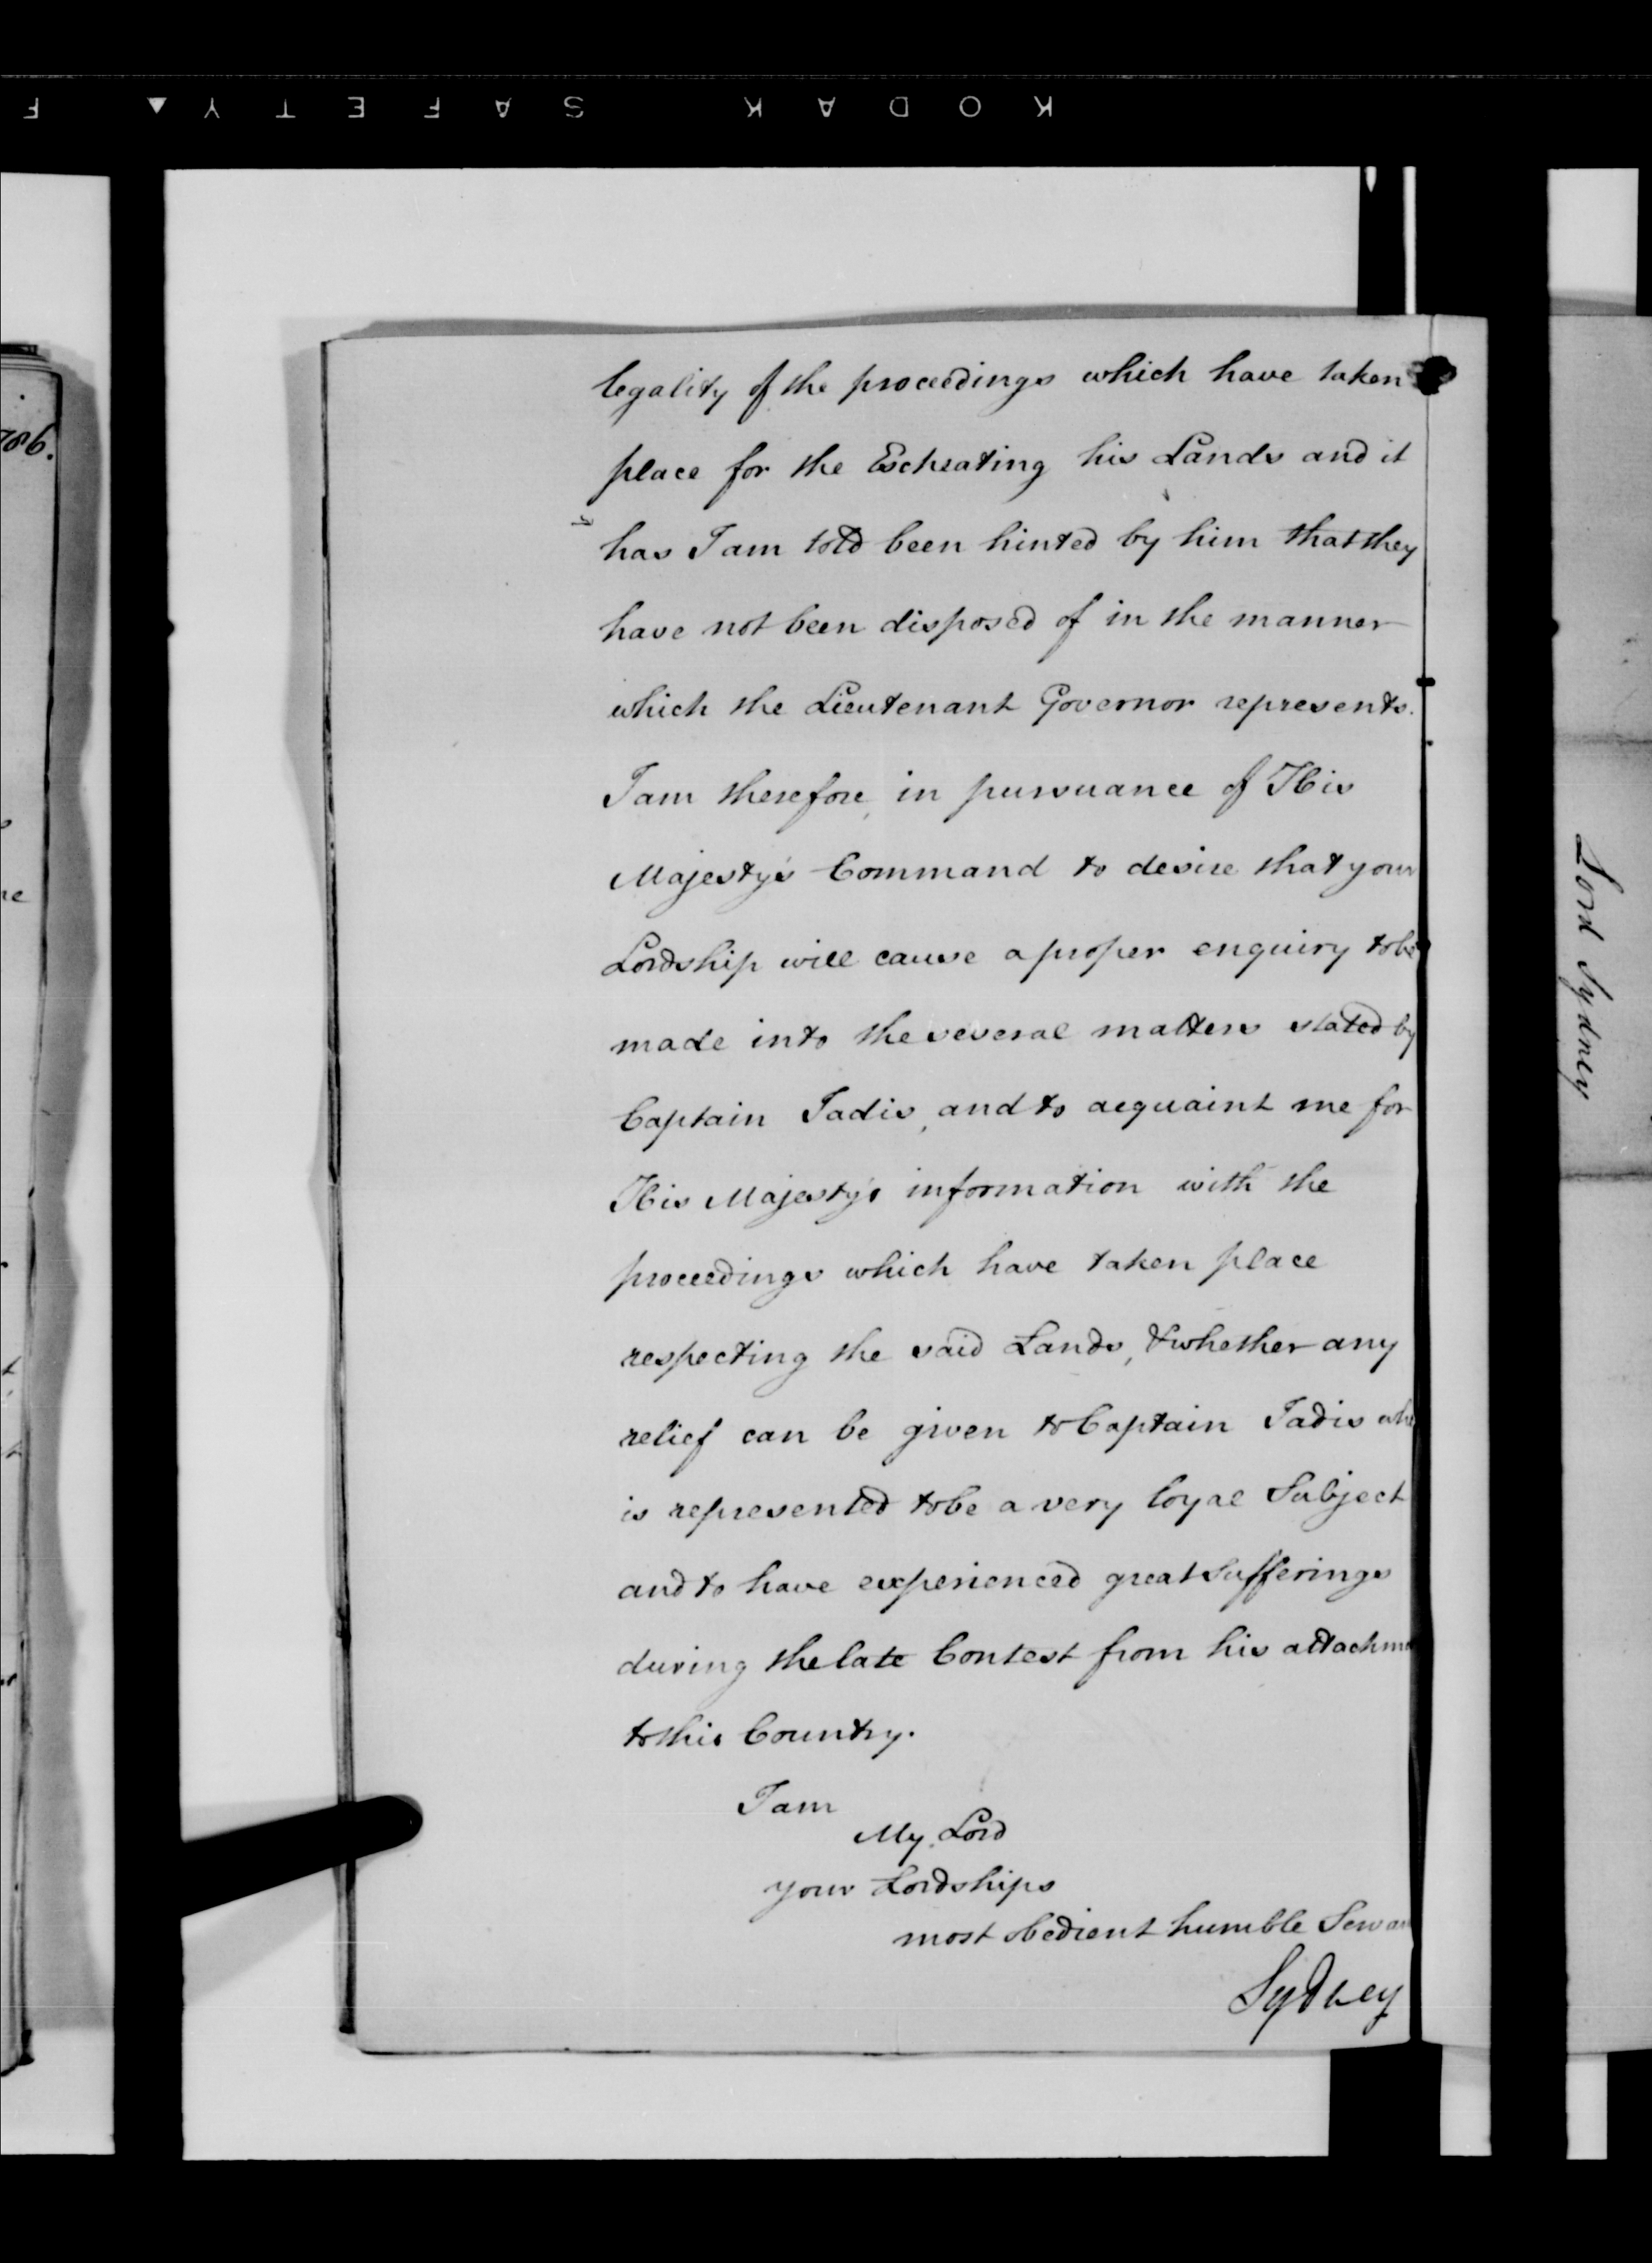 KODAK SAFETY F
786.
legality of the proceedings which have taken
place for the Escheating his Lands and it
has I am told been hinted by him that they
have not been disposed of in the manner
which the Lieutenant Governor represents.
I am therefore, in pursuance of His
Majesty's Command to desire that your
Lordship will cause a proper enquiry to be
made into the several matters stated by
Captain Tadis, and to acquaint me for
His Majesty's information with the
proceedings which have taken place
respecting the said Lands, & whether any
relief can be given to Captain Tadis who
is represented to be a very loyal Subject
and to have experienced great Sufferings
during the late Contest from his attachm
to this Country.
I am
My Lord
your Lordships
most obedient humble Servan
Sydney
Lord Sydney